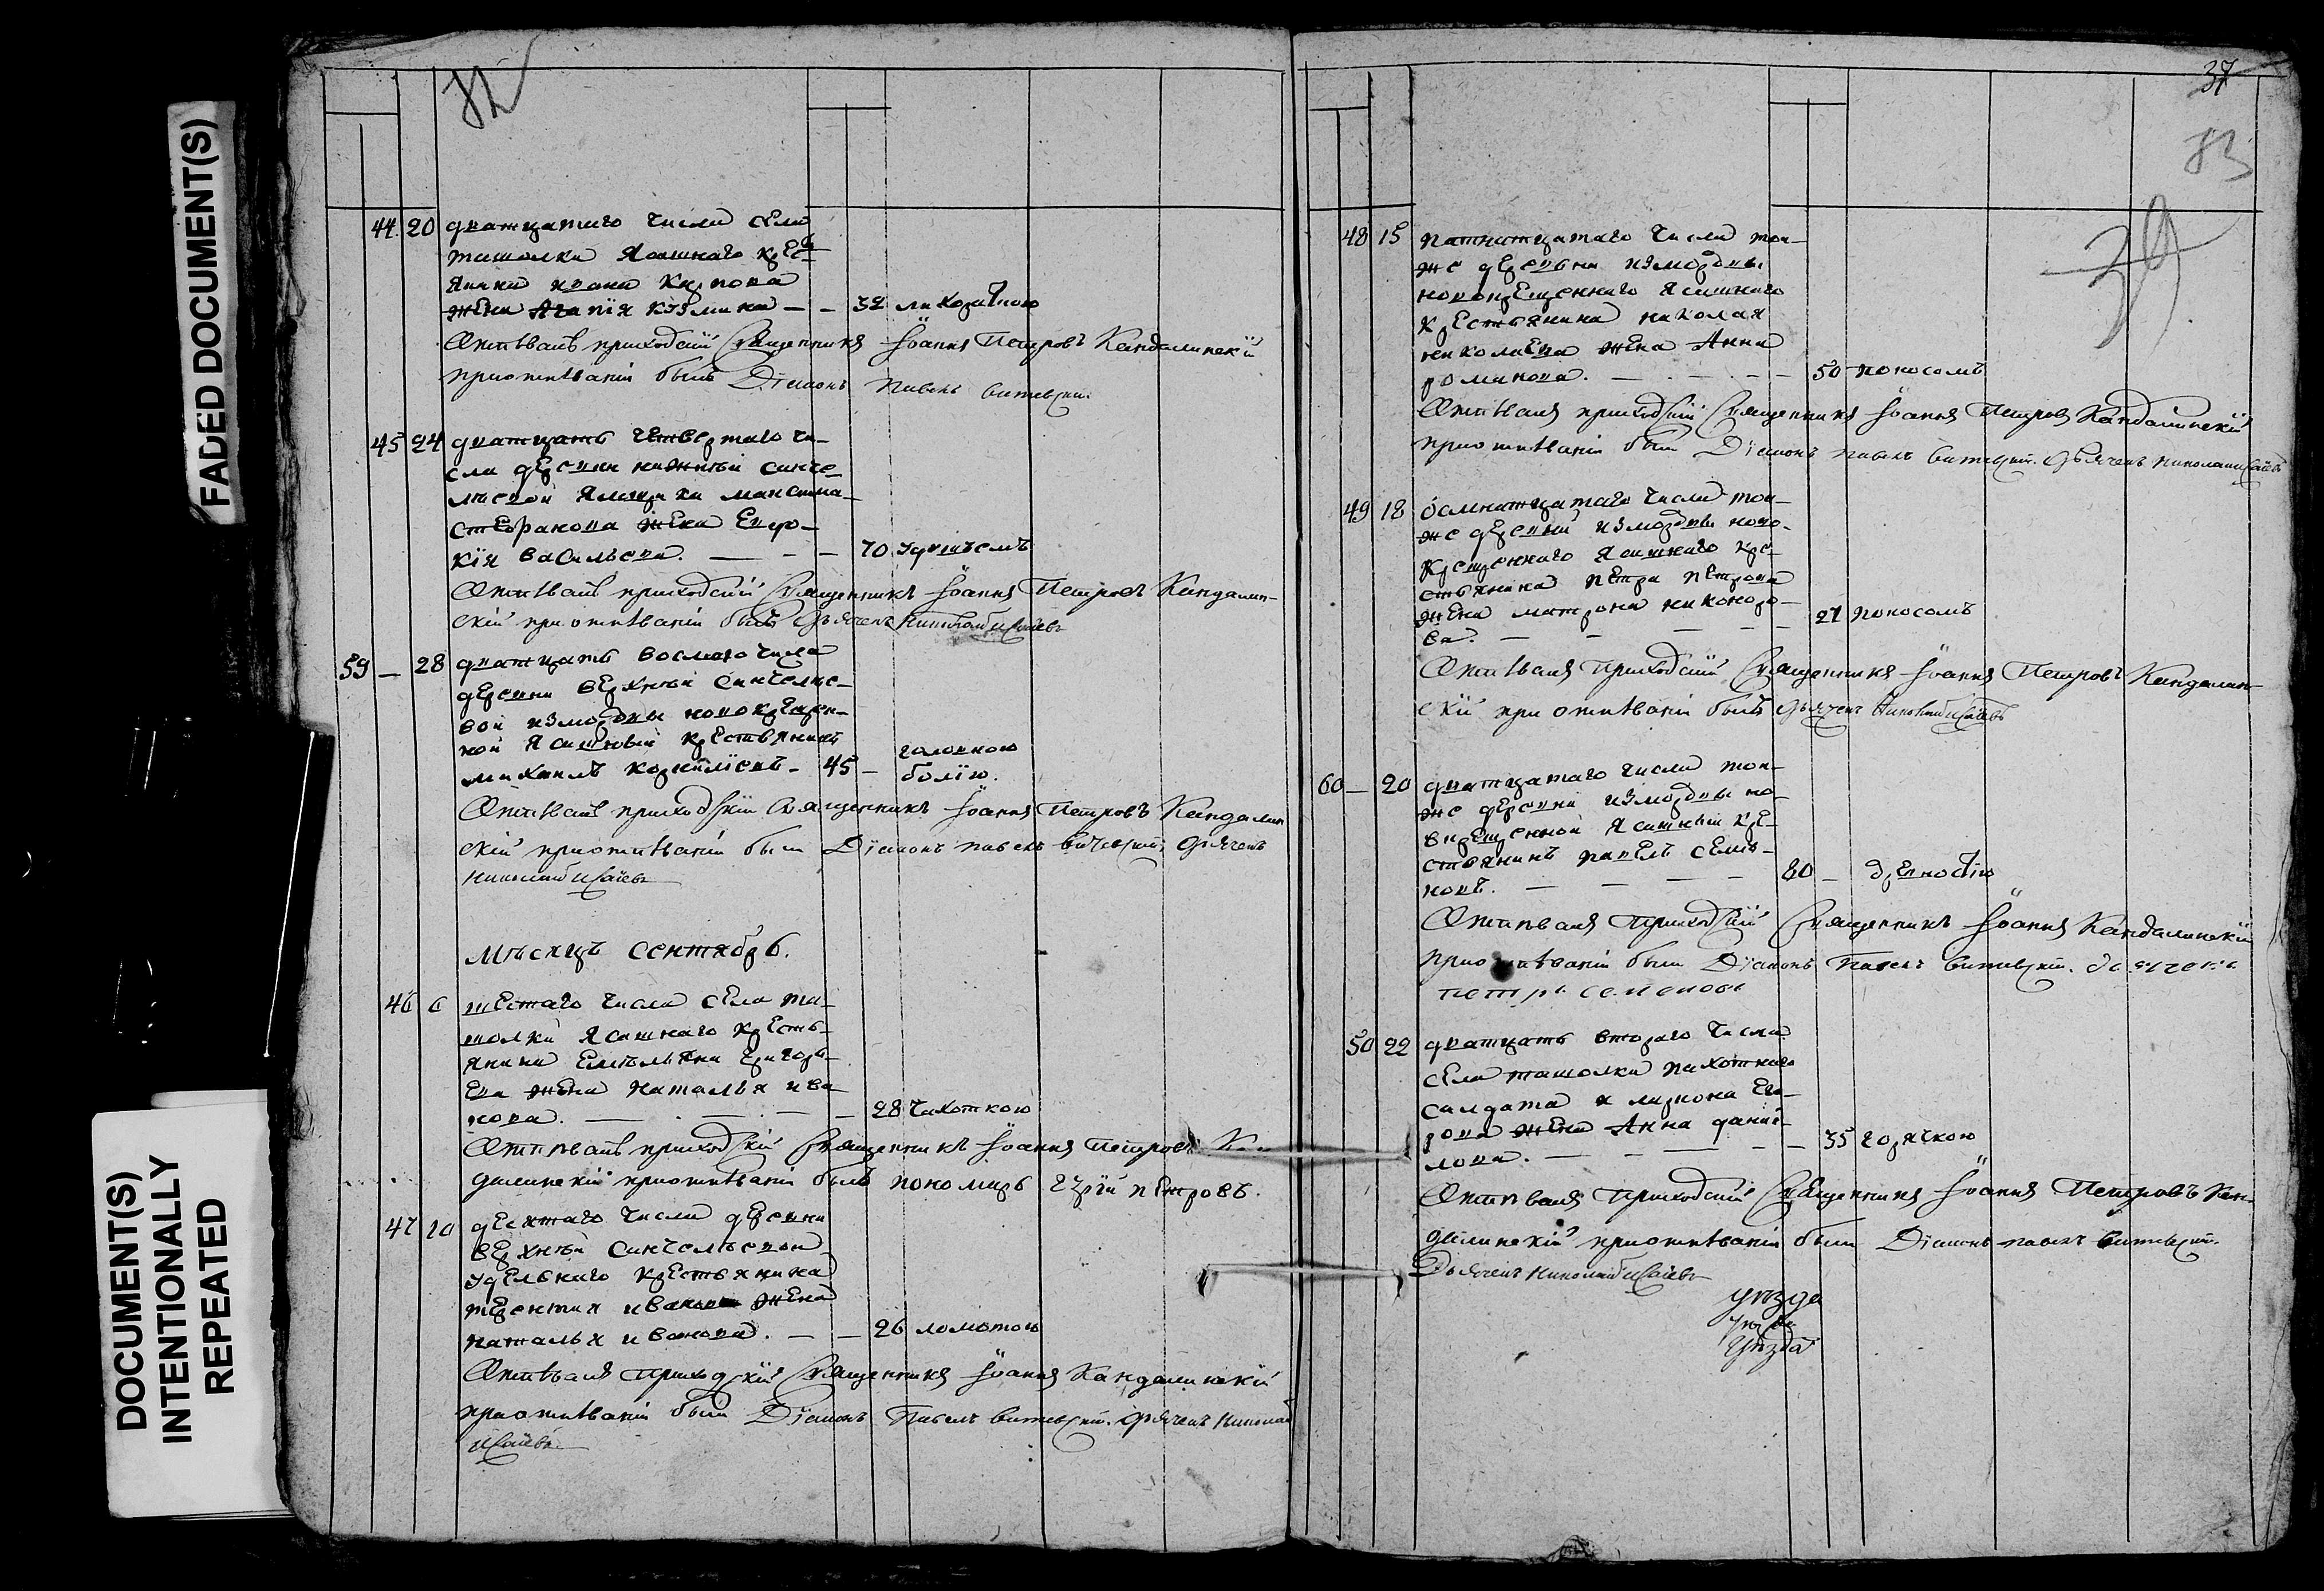 FADED DOCUMENT(S)
DOCUMENT(S)
INTENTIONALLY
REPEATED
82
44 20 дватцатаго числа села
ташолки Ясашнаго крес
янина ивана Карпова
жена Агапія Кузмина — — 32 лихораткою
Отпѣвалъ приходскій Священникъ Іоаннъ Петровъ Кандалинскій
приотпѣваніи былъ Діаконъ Павелъ витевскій
45 24 дватцать четвертаго чи-
сла деревни нижней санче-
лѣевой Ямщика максима
стефанова жена Евдо-
кія васильева. — — — 70 удушьемъ
Отпѣвалъ приходскій Священникъ Іоаннъ Петровъ Кандалин-
скій при отпѣваніи былъ Дьячекъ Николай Исаевъ
59 — 28 дватцать восмого числа
деревни верхней Санчелѣе-
вой измордвы новокрещен-
ной Ясашной крестьянинъ
михаилъ корнилїевъ - 45 — головною
болїю.
Отпѣвалъ приходскїй Священникъ Іоаннъ Петровъ Кандалин
скій приотпѣваніи были Діаконъ павелъ витевскій Дьячекъ
Николай Исаевъ
мѣсяцъ сентябрь.
46 6 шестаго числа села та-
шолки Ясашнаго кресть-
янина Емельяна Григорь-
ева жена наталья ива
нова. — — — — 28 Чихоткою
Отпѣвалъ приходскій Священникъ Іоаннъ петровъ Кан
далинскій приотпѣваніи былъ пономарь Гурїй петровъ.
47 10 десятаго числа деревни
верхней Санчелѣевой
удельнаго крестьянина
терентия иванова жена
наталья иванова. — — 26 ломотою
Отпѣвалъ приходскій Священникъ Іоаннъ Кандалинскій
приотпѣваніи были Діаконъ Павелъ витевскій. Дьячекъ Николай
Исаевъ
37
83
48 15 пятнатцатаго числа тои-
же деревни измордвы
новокрещеннаго Ясашнаго
крестьянина николая
николаева жена Анна
романова. — — — — 50 поносомъ
Отпѣвалъ приходскій Священникъ Іоаннъ Петровъ Кандалинскій
приотпѣваніи были Діаконъ павелъ витевскій. Дьячекъ николай Исаевъ
49 18 осмнатцатаго числа тои-
же деревни измордвы ново-
крещеннаго Ясашнаго кре-
стьянина петра петрова
жена матрона никоноро-
ва. — — — — — 27 поносомъ
Отпѣвалъ Приходскій Священникъ Іоаннъ Петровъ Кандалин-
скій при отпѣваніи былъ дьячекъ Николай Исаевъ
60 — 20 дватцатаго числа тои-
же деревни измордвы но-
вкрещенной Ясашной кре-
стьянинъ павелъ семе-
новъ. — — — — 80 — древностїю
Отпѣвалъ Приходскій Священникъ Іоаннъ Кандалинскій
приотпѣваніи были Діаконъ Павелъ витевскій. дьячекъ
петръ семеновъ
50 22 дватцать втораго числа
села ташолки пахотнаго
салдата лариона Его-
рова жена Анна даней-
лова. — — — — 35 горячкою
Отпѣвалъ Приходскій Священникъ Іоаннъ Петровъ Кан-
далинскій приотпѣваніи были Діаконъ павелъ витевскій.
Дьячекъ Николай Исаевъ
уѣзда
уѣзда
Уѣзда